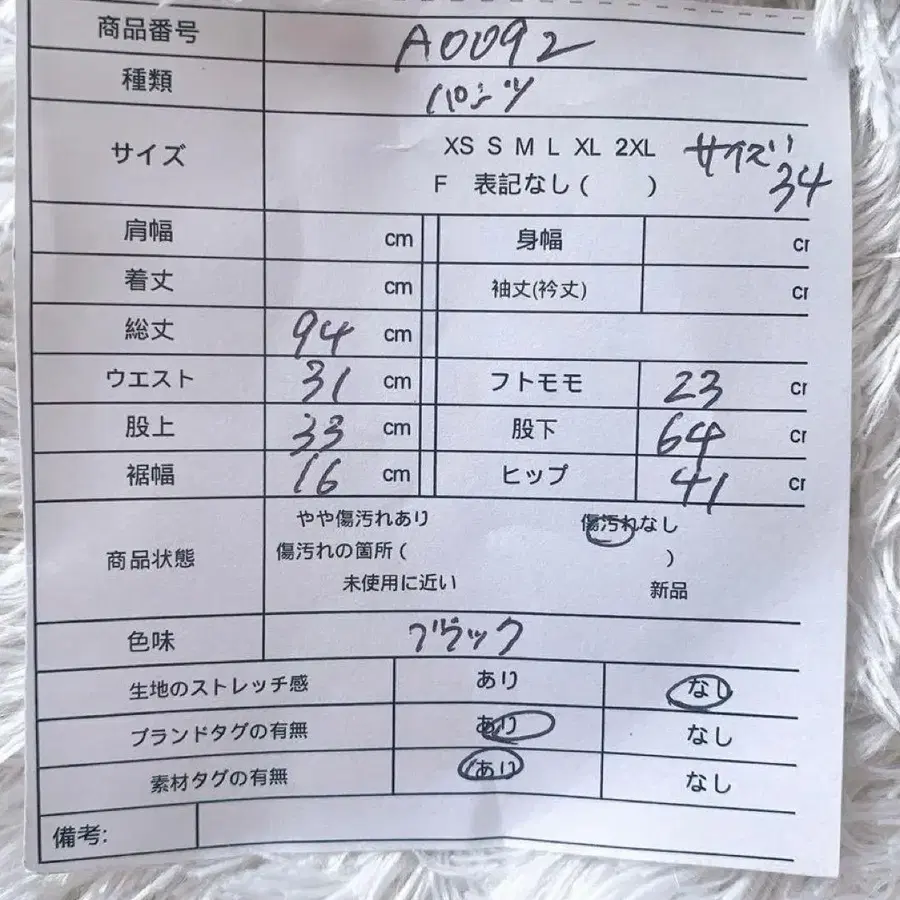 商品番号 A0092
種類 パンツ
サイズ XS S M L XL 2XL サイズ 34
F 表記なし( )
肩幅 cm 身幅 cm
着丈 cm 袖丈(衿丈) cm
総丈 94 cm
ウエスト 31 cm フトモモ 23 cm
股上 33 cm 股下 64 cm
裾幅 16 cm ヒップ 41 cm
やや傷汚れあり 傷汚れなし
商品状態 傷汚れの箇所( )
未使用に近い 新品
色味 ブラック
生地のストレッチ感 あり なし
ブランドタグの有無 あり なし
素材タグの有無 あり なし
備考: